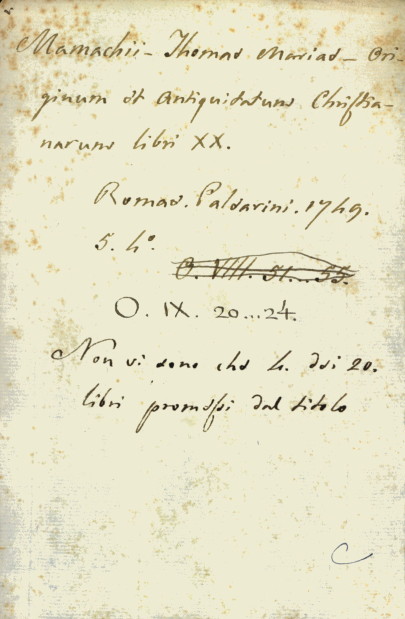 Mamachii - Thomae Mariae - Ori-
ginum et Antiquitatum Christia-
narum libri XX.
Romae. Paldarini. 1749.
5. 4°.
O. VIII. 51...55.
O. IX. 20...24.
Non vi sono che 4. dei 20.
libri promessi dal titolo
C